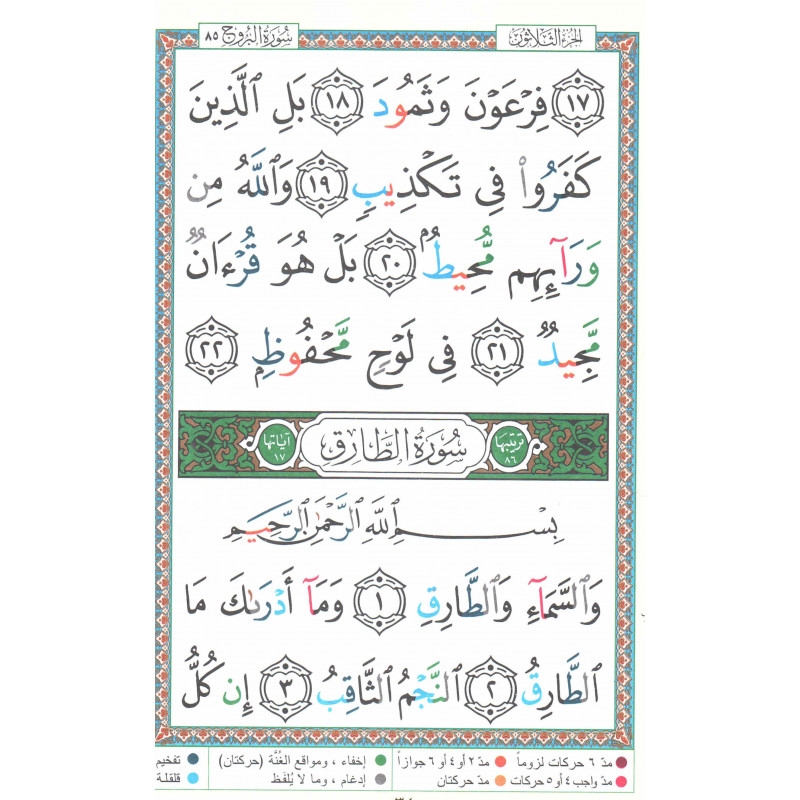 الجزء الثلاثون
سورة البروج ٨٥
١٧ فِرْعَوْنَ وَثَمُودَ ١٨ بَلِ ٱلَّذِينَ
كَفَرُوا۟ فِى تَكْذِيبٍ ١٩ وَٱللَّهُ مِن
وَرَآئِهِم مُّحِيطٌۢ ٢٠ بَلْ هُوَ قُرْءَانٌ
مَّجِيدٌ ٢١ فِى لَوْحٍ مَّحْفُوظٍۭ ٢٢
ترتيبها ٨٦ سُورَةُ الطَّارِقِ آياتها ١٧
بِسْمِ ٱللَّهِ ٱلرَّحْمَٰنِ ٱلرَّحِيمِ
وَٱلسَّمَآءِ وَٱلطَّارِقِ ١ وَمَآ أَدْرَىٰكَ مَا
ٱلطَّارِقُ ٢ ٱلنَّجْمُ ٱلثَّاقِبُ ٣ إِن كُلُّ
مدّ ٦ حركات لزوماً مدّ ٢ أو ٤ أو ٦ جوازاً إخفاء ، ومواقع الغُنَّة (حركتان) تفخيم
مدّ واجب ٤ أو ٥ حركات مدّ حركتان إدغام ، وما لا يُلفَظ قلقلة